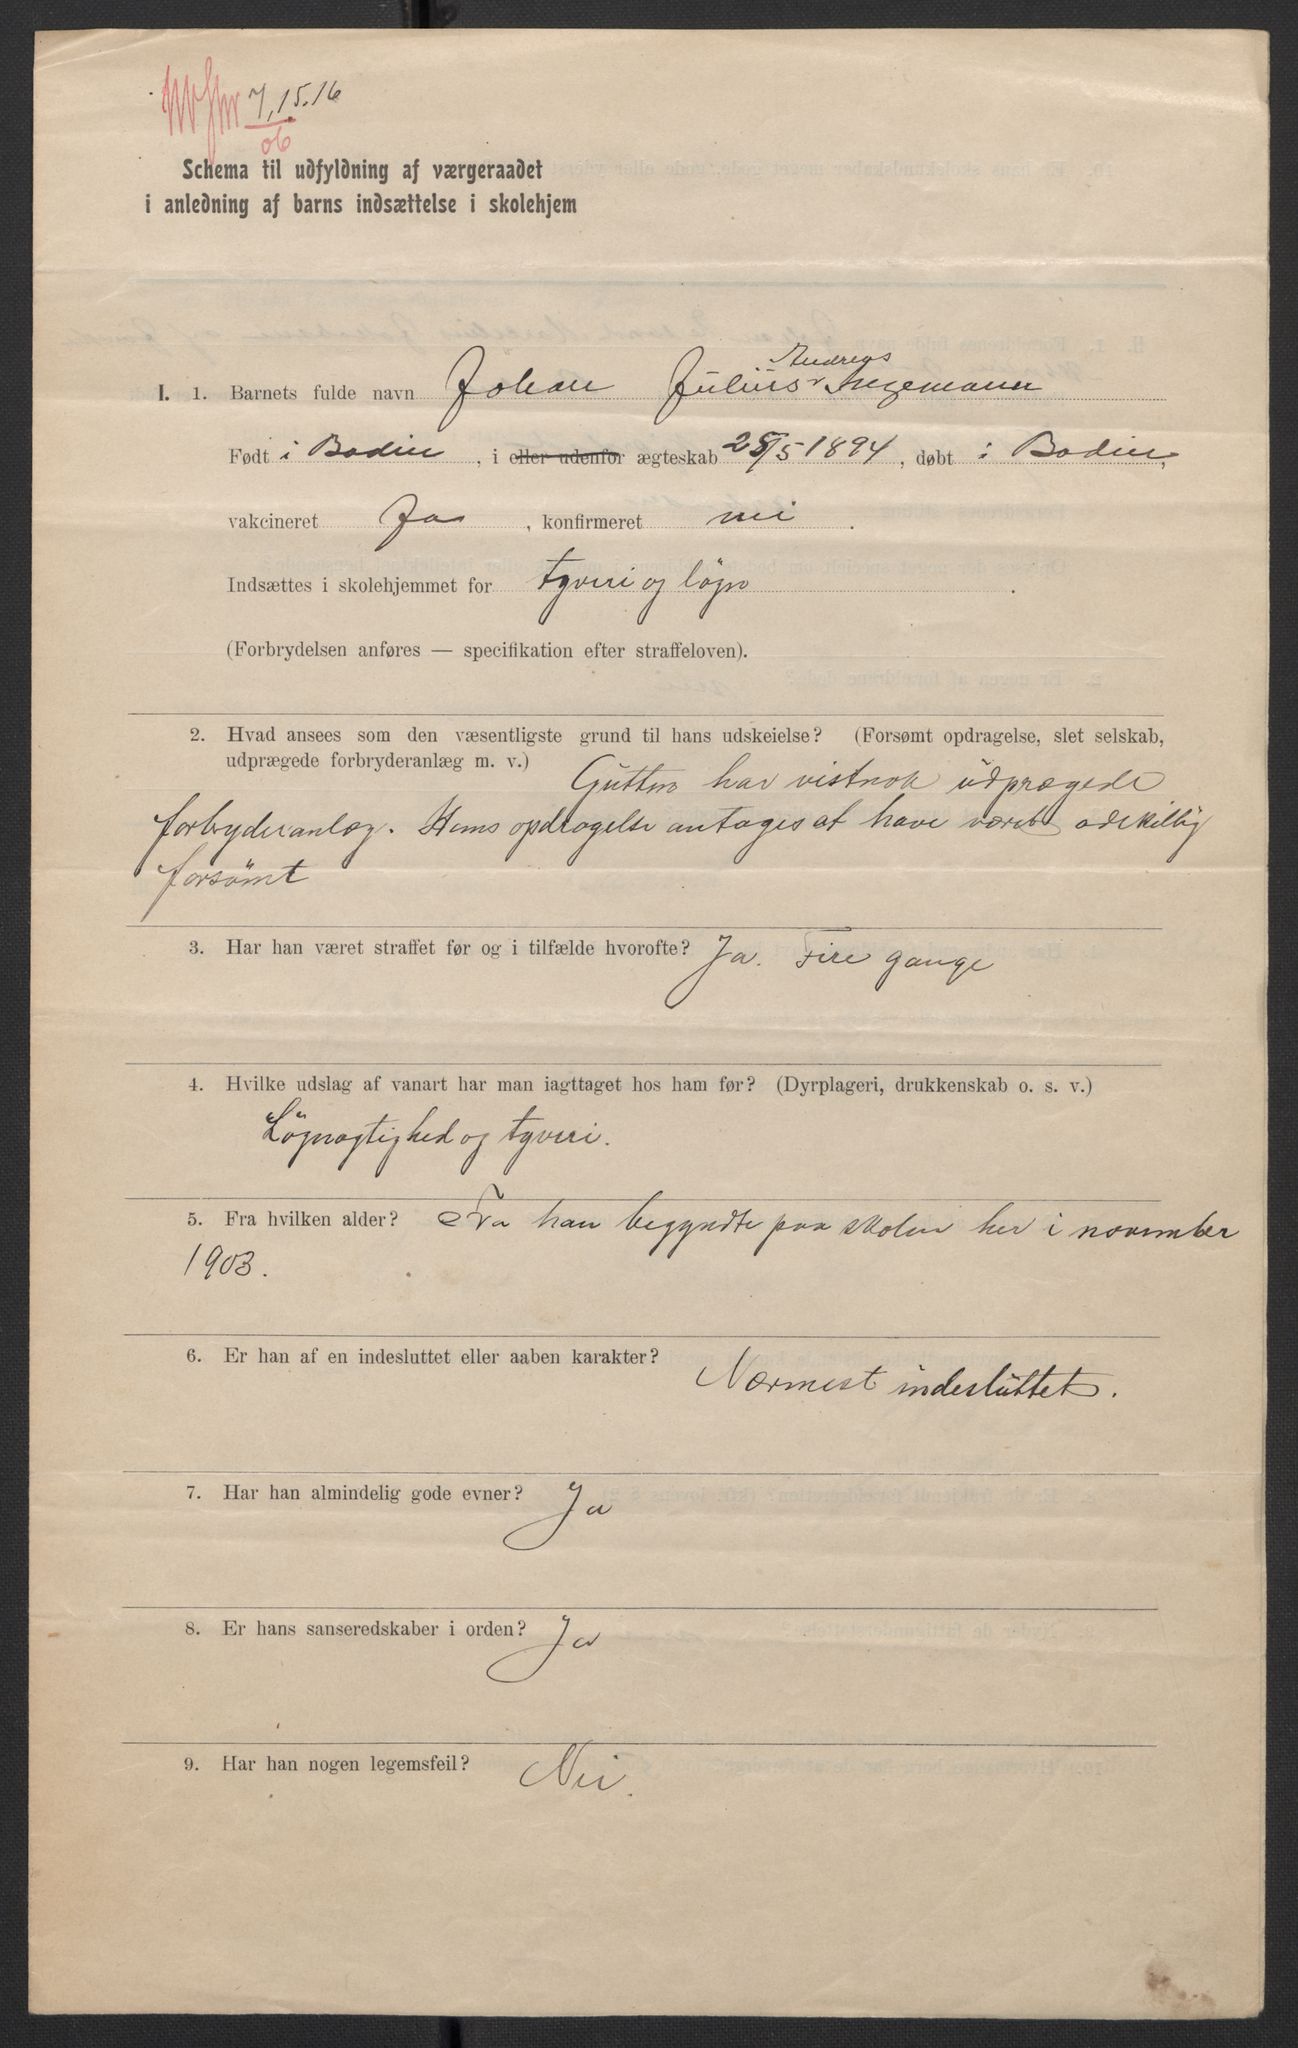 7, 15. 16
06
Schema til udfyldning af værgeraadet
i anledning af barns indsættelse i skolehjem
Andreas
I. 1. Barnets fulde navn Johan Julius Ingemann
Født i Bodin, i eller udenfor ægteskab 25/5 1894, døbt i Bodin,
vakcineret Ja, konfirmeret nei.
Indsættes i skolehjemmet for tyveri og løgn.
(Forbrydelsen anføres — specifikation efter straffeloven).
2. Hvad ansees som den væsentligste grund til hans udskeielse? (Forsømt opdragelse, slet selskab,
udprægede forbryderanlæg m. v.) Gutten har vistnok udprægede
forbryderanlæg. Hans opdragelse antages at have været adskillig
forsømt
3. Har han været straffet før og i tilfælde hvorofte? Ja. Fire gange
4. Hvilke udslag af vanart har man iagttaget hos ham før? (Dyrplageri, drukkenskab o. s. v.)
Løgnagtighed og tyveri.
5. Fra hvilken alder? Fra han begyndte paa skolen her i november
1903.
6. Er han af en indesluttet eller aaben karakter? Nærmest indesluttet.
7. Har han almindelig gode evner? Ja
8. Er hans sanseredskaber i orden? Ja
9. Har han nogen legemsfeil? Nei.